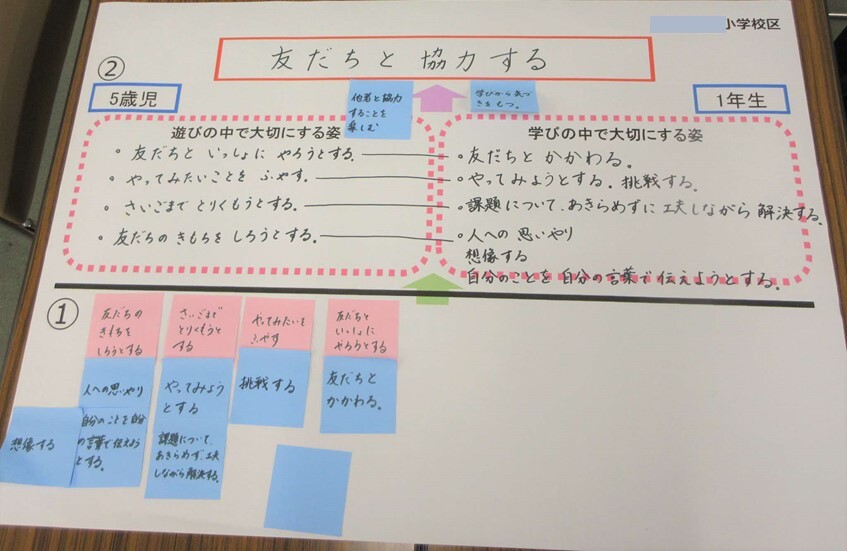 小学校区
②
友だちと協力する
5歳児
他者と協力
することを
楽しむ
学びから気づ
きをもつ。
1年生
遊びの中で大切にする姿
・友だちと いっしょに やろうとする。
・やってみたいことを ふやす。
・さいごまで とりくもうとする。
・友だちの きもちを しろうとする。
学びの中で大切にする姿
・友だちと かかわる。
・やってみようとする。挑戦する。
・課題について、あきらめずに 工夫しながら 解決する。
・人への 思いやり
想像する
自分のことを 自分の言葉で 伝えようとする。
①
友だちの
きもちを
しろうとする
さいごまで
とりくもうと
する
やってみたいを
ふやす
友だちと
いっしょに
やろうとする
人への思いやり
やってみよう
とする
挑戦する
友だちと
かかわる。
想像する
自分のことを自分
の言葉で伝えよう
とする。
課題について、
あきらめず、工夫
しながら解決する。